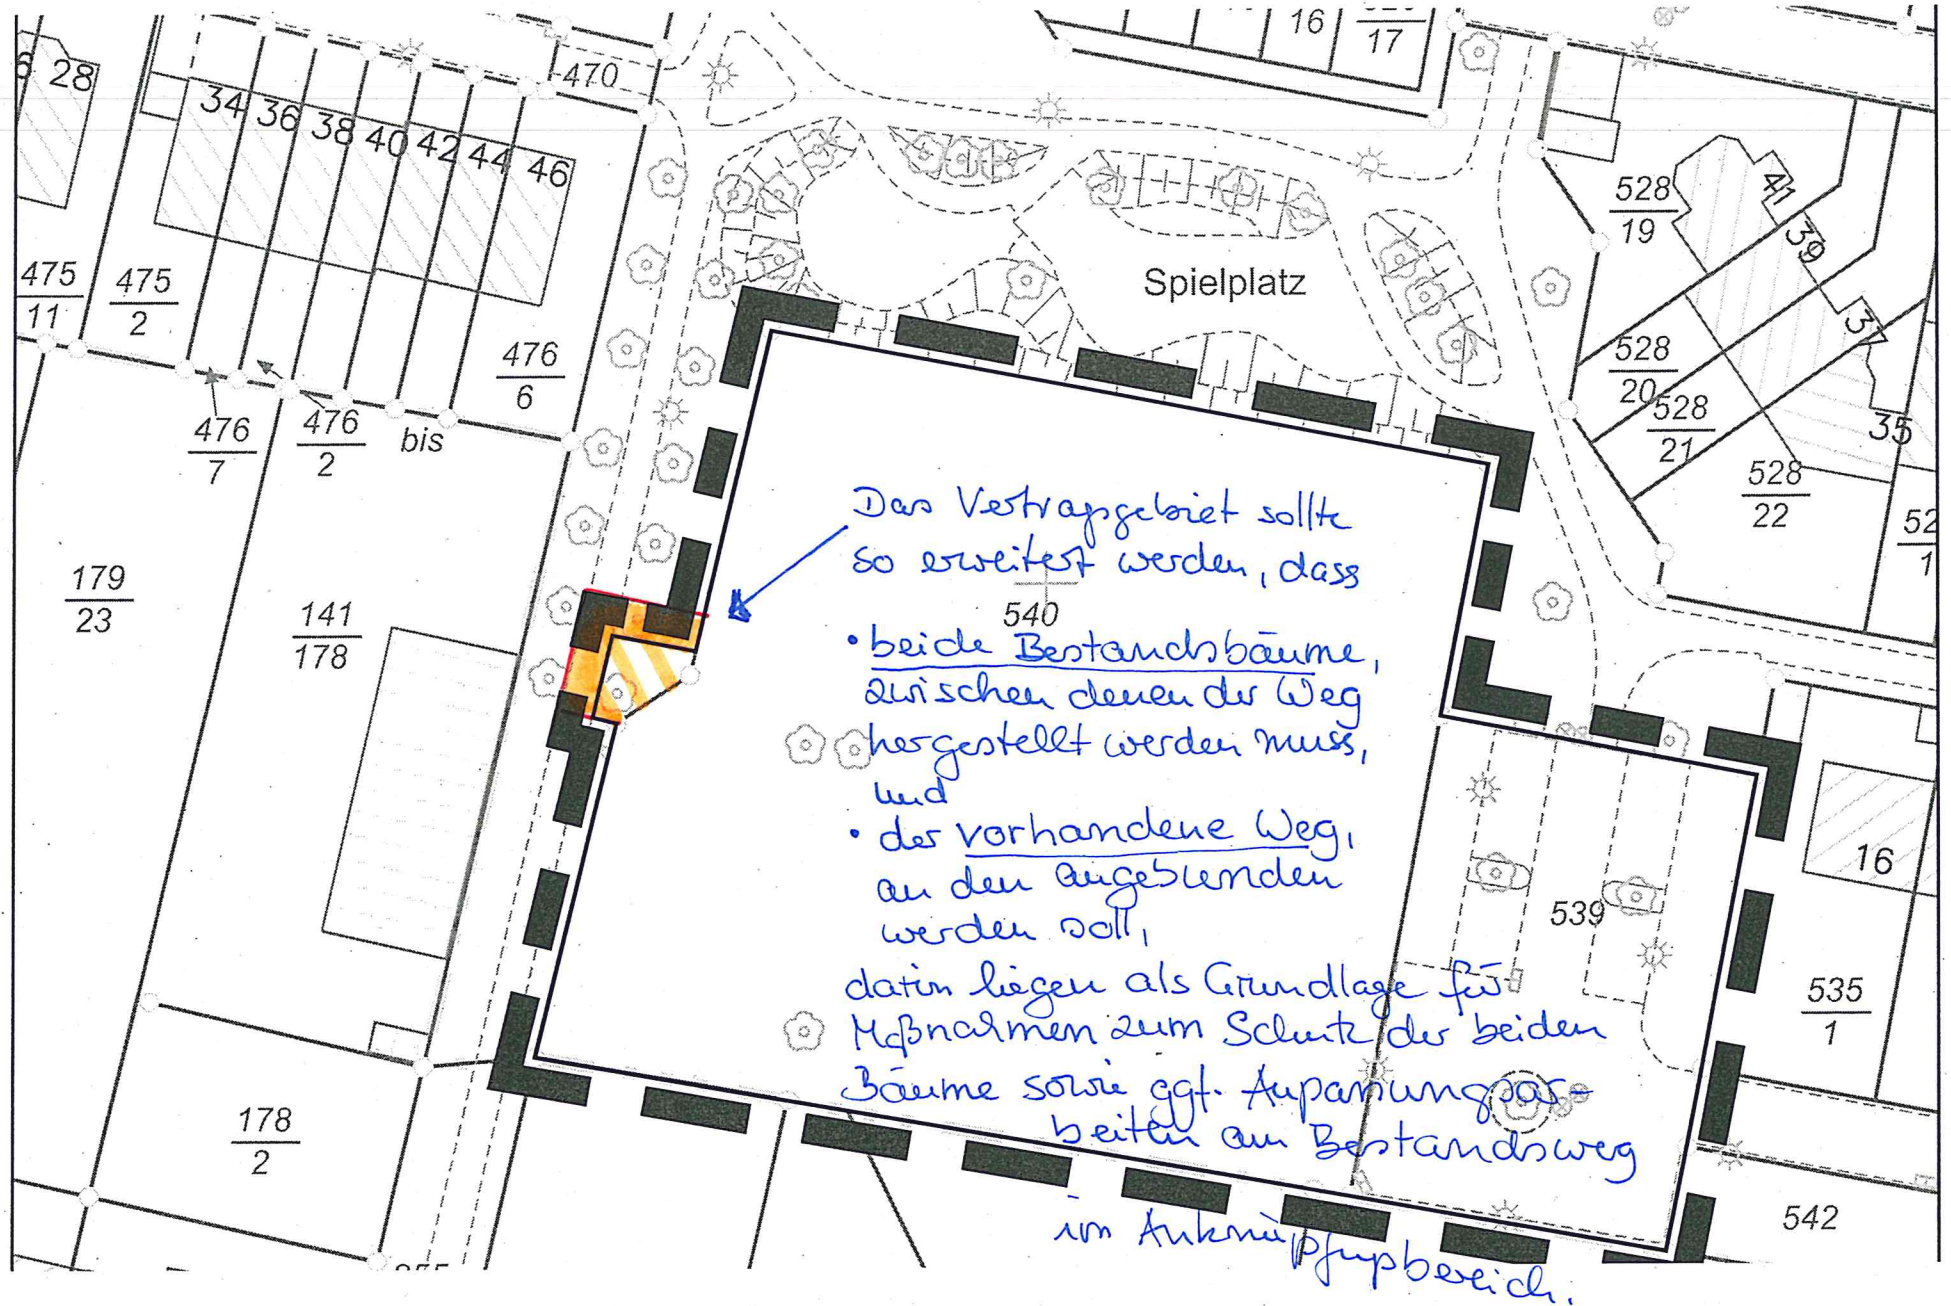 16
17
470
28
34 36 38 40 42 44 46
528
19
41
39
37
35
475
11
475
2
Spielplatz
476
6
528
20
528
21
528
22
476
7
476
2
bis
52
1
Das Vertragsgebiet sollte
so erweitert werden, dass
179
23
141
178
540
• beide Bestandsbäume,
zwischen denen der Weg
hergestellt werden muss,
und
• der vorhandene Weg,
an den angebunden
werden soll,
16
539
darin liegen als Grundlage für
Maßnahmen zum Schutz der beiden
Bäume sowie ggf. Anpassungsar-
beiten am Bestandsweg
im Anknüpfungsbereich.
535
1
178
2
542